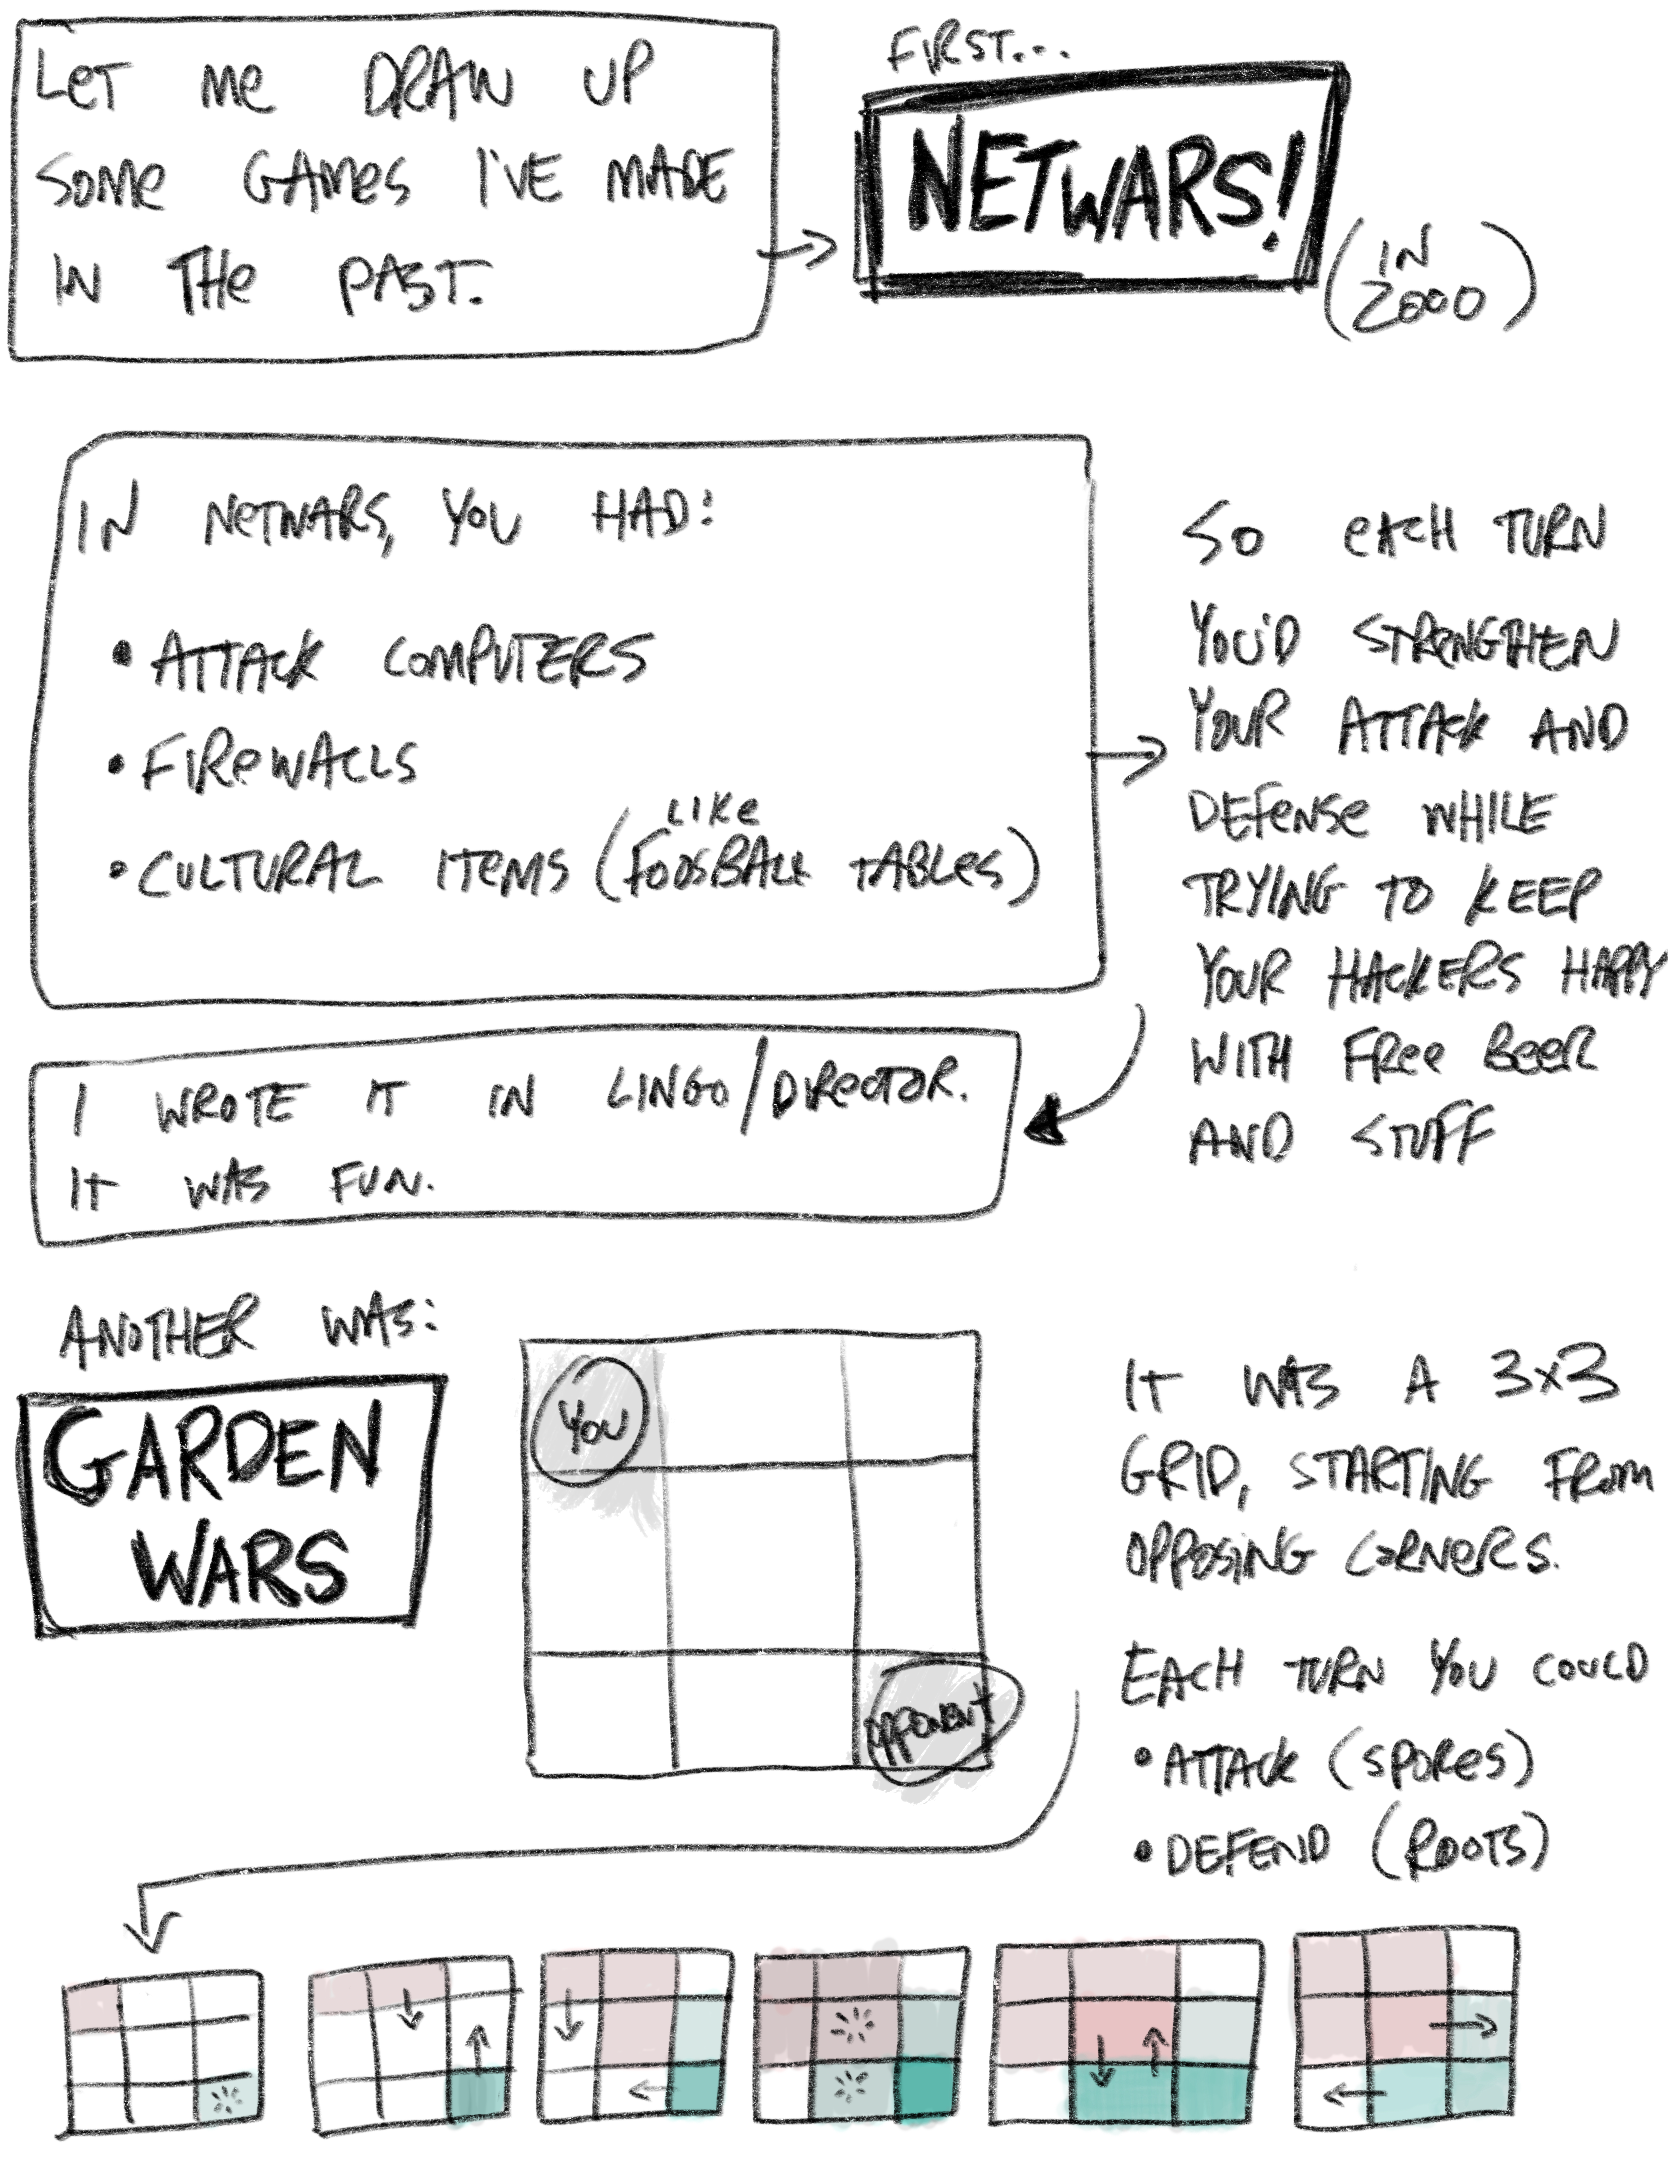 LET ME DRAW UP
SOME GAMES I'VE MADE
IN THE PAST.
FIRST...
NETWARS!
(IN
2000)
IN NETWARS, YOU HAD:
• ATTACK COMPUTERS
• FIREWALLS
LIKE
• CULTURAL ITEMS (FOOSBALL TABLES)
SO EACH TURN
YOU'D STRENGTHEN
YOUR ATTACK AND
DEFENSE WHILE
TRYING TO KEEP
YOUR HACKERS HAPPY
WITH FREE BEER
AND STUFF
I WROTE IT IN LINGO/DIRECTOR.
IT WAS FUN.
ANOTHER WAS:
GARDEN
WARS
YOU
OPPONENT
IT WAS A 3x3
GRID, STARTING FROM
OPPOSING CORNERS.
EACH TURN YOU COULD
• ATTACK (SPORES)
• DEFEND (ROOTS)